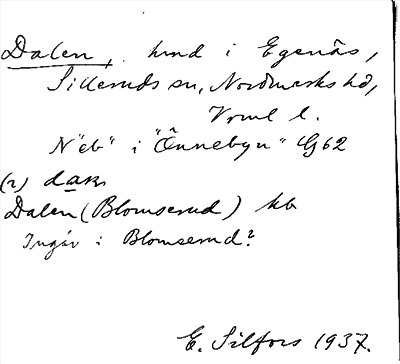 Dalen, hmd i Egenäs,
Silleruds sn, Nordmarks hd,
Vrml l.
N "eb" i "Önnebyn" G62
(r)
Dalen (Blomserud) kb
Ingår i Blomserud?
E. Silfors 1937.